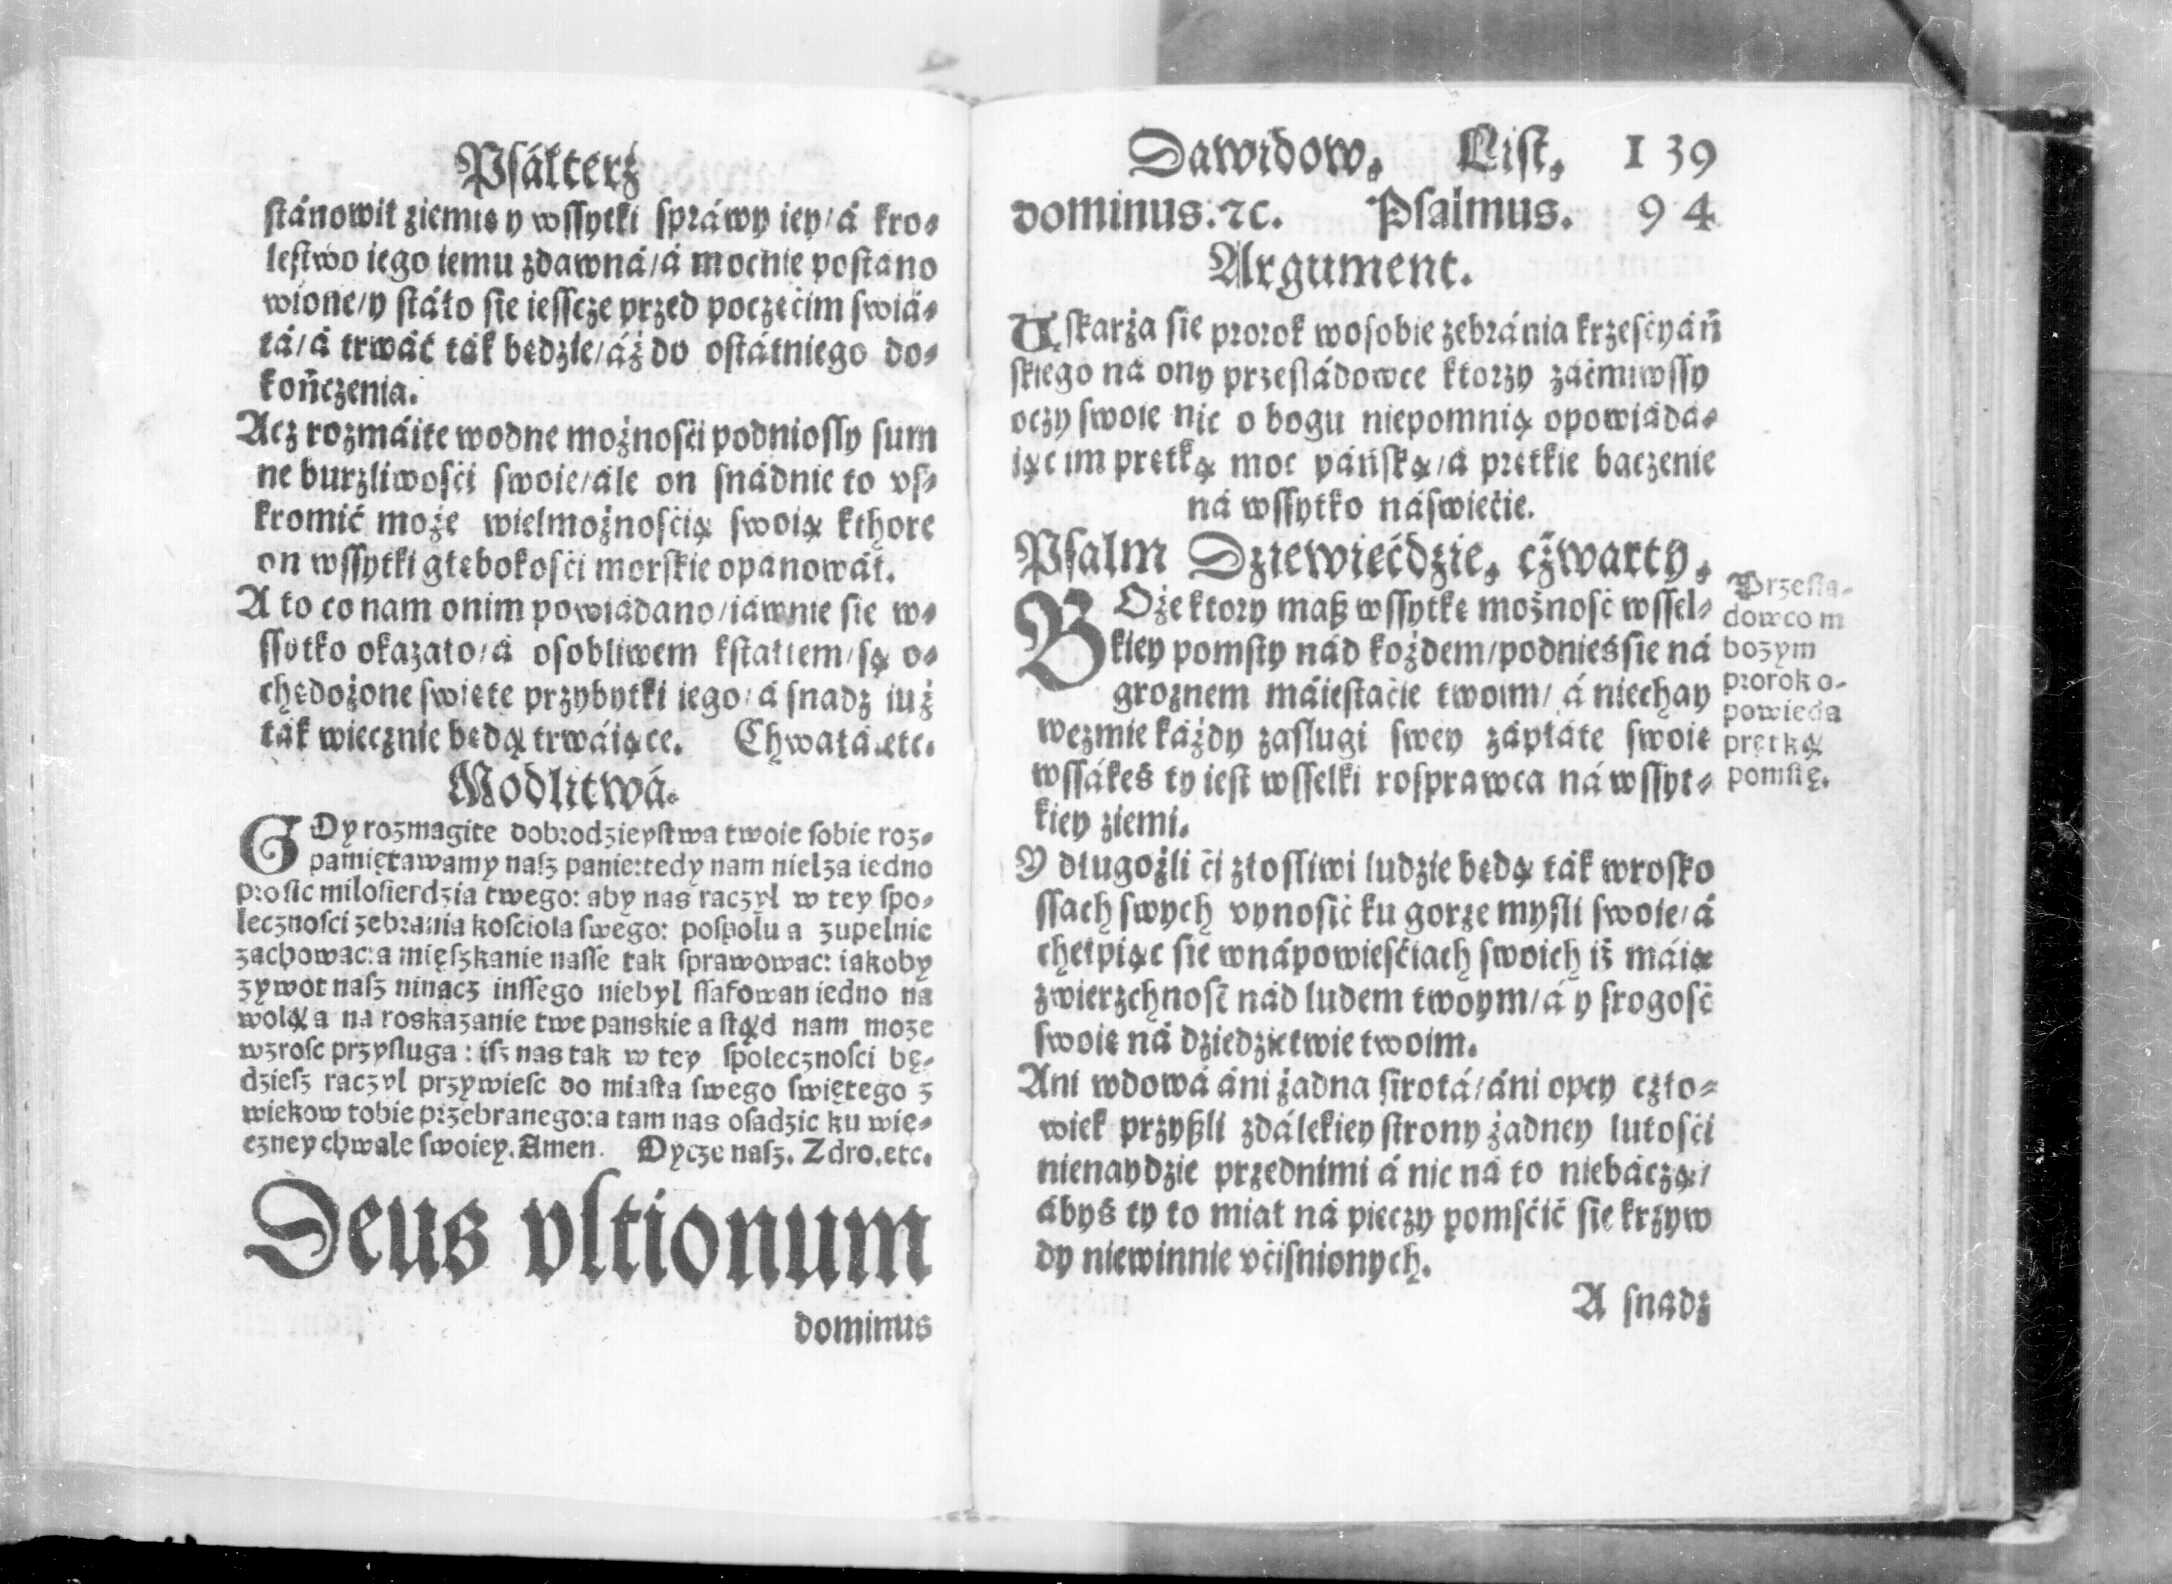 Psałterz
stánowił ziemię y wssytki spráwy iey/á kro-
lestwo iego iemu zdawná/á mocnie postáno
wione/y stáło sie iesscze przed poczęćim swiá-
tá/á trwáć ták będzie/áż do ostátniego do-
kończenia.
Acz rozmáite wodne możnosći podniosły sum
ne burzliwosći swoie/ále on snádnie to vs-
kromić może wielmożnosćią swoią kthore
on wssytki głębokosći morskie opánował.
A to co nam onim powiádano/iáwnie sie w-
ssytko okazało/á osobliwem kstałtem/są o-
chędożone swięte przybytki iego/á snadz iuż
ták wiecznie będą trwáiące. Chwałá.etc.
Modlitwá.
GDy rozmagite dobrodzieystwa twoie sobie roz-
pamiętawamy nasz panie:tedy nam nielza iedno
prosic milosierdzia twego: aby nas raczyl w tey spo-
lecznosci zebrania kosciola swego: pospolu a zupelnie
zachowac:a mięszkanie nasse tak sprawowac: iakoby
zywot nasz ninacz inssego niebyl ssafowan iedno na
wolą a na roskazanie twe panskie a stąd nam moze
wzrosc przysluga : isz nas tak w tey spolecznosci bę-
dziesz raczyl przywiesc do miasta swego swiętego z
wiekow tobie przebranego:a tam nas osadzic ku wię-
czney chwale swoiey. Amen. Oycze nasz. Zdro.etc.
Deus vltionum
dominus
Dawidow. List. 139
dominus.⁊c. Psalmus. 94
Argument.
Uskarża sie prorok wosobie zebránia krzesćyáń
skiego ná ony przesládowce ktorzy záćmiwssy
oczy swoie nic o bogu niepomnią opowiáda-
iąc im prętką moc páńską/á prętkie baczenie
ná wssytko náswiećie.
Psalm Dziewiećdzie. czwarty.
BOże ktory masz wssytkę możność wssel-
kiey pomsty nád kożdem/podnieś sie ná
groznem máiestaćie twoim/ á niechay
wezmie káżdy zasługi swey zápłatę swoię
wssákeś ty iest wsselki rosprawca ná wssyt-
kiey ziemi.
Y długożli ći złosliwi ludzie będą ták wrosko
ssach swych vynosić ku gorze mysli swoie/á
chełpiąc sie wnápowiesćiach swoich iż máią
zwierzchność nád ludem twoym/á y srogość
swoię ná dziedzictwie twoim.
Ani wdowá áni żadna sirotá/áni opcy czło-
wiek przyszli zdálekiey strony żadney lutosći
nienaydzie przednimi á nic ná to niebáczą/
ábyś ty to miał ná pieczy pomśćić sie krzyw
dy niewinnie vćisnionych.
A snadz
Przesla-
dowcom
bozym
prorok o-
powieda
prętką
pomstę.